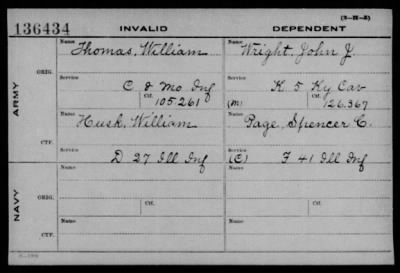 (3-M-5)
136434
INVALID
DEPENDENT
ARMY
ORIG.
Name
Thomas, William
Name
Wright, John J.
Service
C 8 Mo Inf
Service
K 5 Ky Cav
Ctf.
105261
(m)
Ctf.
126.367
CTF.
Name
Husk, William
Name
Page, Spencer C.
Service
D 27 Ill Inf
Service
(C) F 41 Ill Inf
NAVY
ORIG.
Name
Name
Service
Ctf.
Service
Ctf.
CTF.
Name
Name